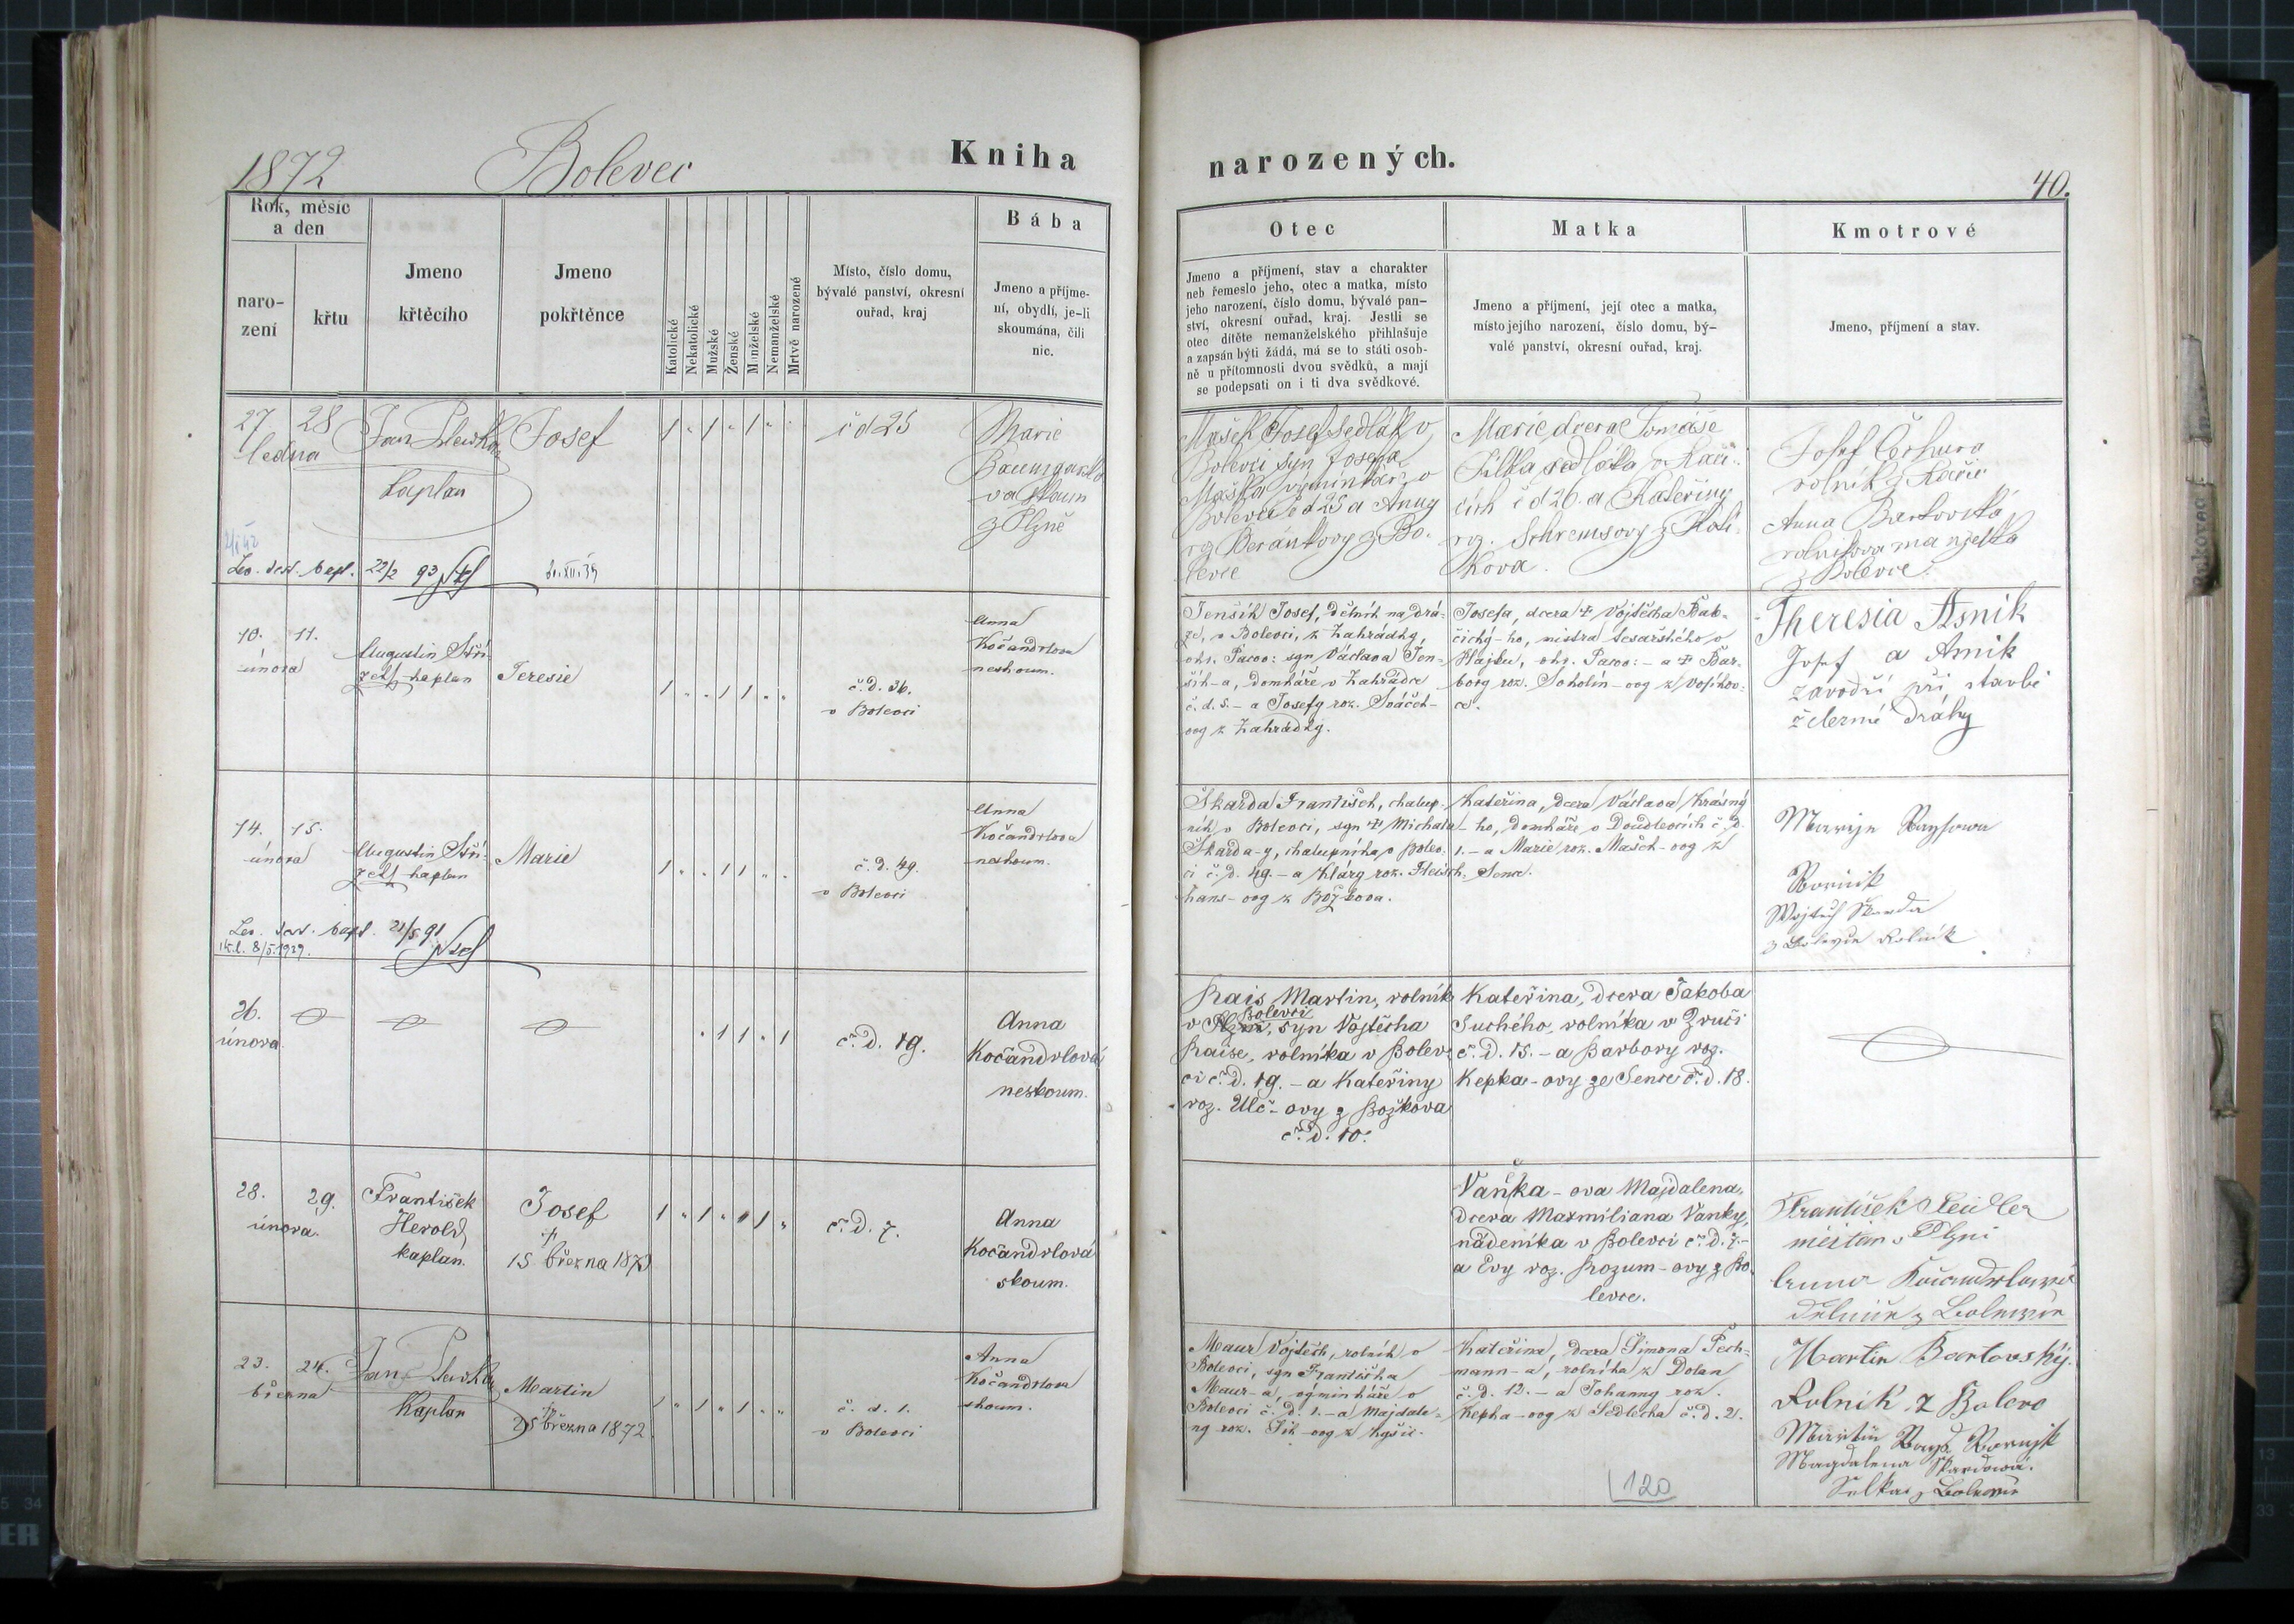 1872
Bolevec
Kniha
narozených.
40.
Rok, měsíc
a den
naro-
zení
křtu
Jmeno
křtěcího
Jmeno
pokřtěnce
Katolické
Nekatolické
Mužské
Ženské
Manželské
Nemanželské
Mrtvě narozené
Místo, číslo domu,
bývalé panství, okresní
ouřad, kraj
Bába
Jmeno a příjme-
ní, obydlí, je-li
skoumána, čili
nic.
Otec
Jmeno a příjmení, stav a charakter
neb řemeslo jeho, otec a matka, místo
jeho narození, číslo domu, bývalé pan-
ství, okresní ouřad, kraj. Jestli se
otec dítěte nemanželského přihlašuje
a zapsán býti žádá, má se to státi osob-
ně u přítomnosti dvou svědků, a mají
se podepsati on i ti dva svědkové.
Matka
Jmeno a příjmení, její otec a matka,
místo jejího narození, číslo domu, bý-
valé panství, okresní ouřad, kraj.
Kmotrové
Jmeno, příjmení a stav.
27 28
ledna
Jan
kaplan
Josef
1 " 1 " 1 "
č d 25
Marie
z Plzně
Mašek Josef sedlák v
Bolevci syn Josefa
Maška výminkáře v
Bolevci č d 25 a Anny
rz Beránkovy z Bo-
levce
Marie dcera Tomáše
sedláka v
cích č d 26. a Kateřiny
roz.
kova.
Josef
rolník z
Anna Bartovská
rolníkova manželka
z Bolevce.
22/2 93
10. 11.
února
Augustin Stří-
zek kaplan
Teresie
1 " " 1 1 " "
č. d. 36.
v Bolevci
Anna
Kočandrlova
neskoum.
Jenšík Josef, dělník na drá-
ze, v Bolevci, z Zahrádky,
okr. Pacov: syn Václava Jen-
šík-a, domkáře v Zahrádce
č. d. 5. - a Josefy roz. Sváček-
ovy z Zahrádky.
Josefa, dcera † Vojtěcha Bab-
čický-ho, mistra tesařského v
Hájku, okr. Pacov: - a † Bar-
bory roz. Sokolín-ovy z
Theresia Asnik
Josef a Asnik
závodčí při stavbě
železné dráhy
14. 15.
února
Augustin Stří-
zek kaplan
Marie
1 " " 1 1 " "
č. d. 49.
v Bolevci
Anna
Kočandrlova
neskoum.
Škarda František, chalup-
ník v Bolevci, syn † Michala
Škarda-y, chalupníka v Bolev-
ci č. d. 49. - a Kláry roz. Fleisch-
hans-ovy z Božkova.
Kateřina, dcera Václava Krásný-
ho, domkáře v Doudlevcích č. d.
1. - a Marie roz. Mašek-ovy z
Sence.
Wojtěch Skarda
z Bolevce Rolník
21/5 91
8/5.1939.
26.
února
" 1 1 " 1
č. d. 19.
Anna
Kočandrlová
neskoum.
Rais Martin, rolník
Bolevci
v Plzni, syn Vojtěcha
Raise, rolníka v Bolev-
ci č. d. 19. - a Kateřiny
roz. Ulč-ovy z Božkova
č. d. 10.
Kateřina, dcera Jakoba
Suchého, rolníka v Zruči
č. d. 15. - a Barbory roz.
Kepka-ovy ze Sence č. d. 18.
28. 29.
února.
František
Herold,
kaplan.
Josef
15 března 187
č. d. 7.
Anna
Kočandrlová
skoum.
Vaňka-ova Majdalena,
dcera Maxmiliana Vaňky,
nádeníka v Bolevci č. d. 7. -
a Evy roz. Rozum-ovy z Bo-
levce.
František
měšťan v Plzni
Anna
23. 24.
března
Jan
Kaplan
Martin
25 března 1872.
1 " 1 " 1 " "
č. d. 1.
v Bolevci
Anna
Kočandrlova
skoum.
Maur Vojtěch, rolník v
Bolevci, syn Františka
Maur-a, výminkáře v
Bolevci č. d. 1. - a Majdale-
ny roz. Šik-ovy z Kyšic.
Kateřina, dcera Šimona Pech-
mann-a, rolníka z Dolan
č. d. 12. - a Johanny roz.
Kepka-ovy z Sedlecka č. d. 2.
Martin Bartovský.
Rolník z Bolevc
Magdalena Skardowa.
120